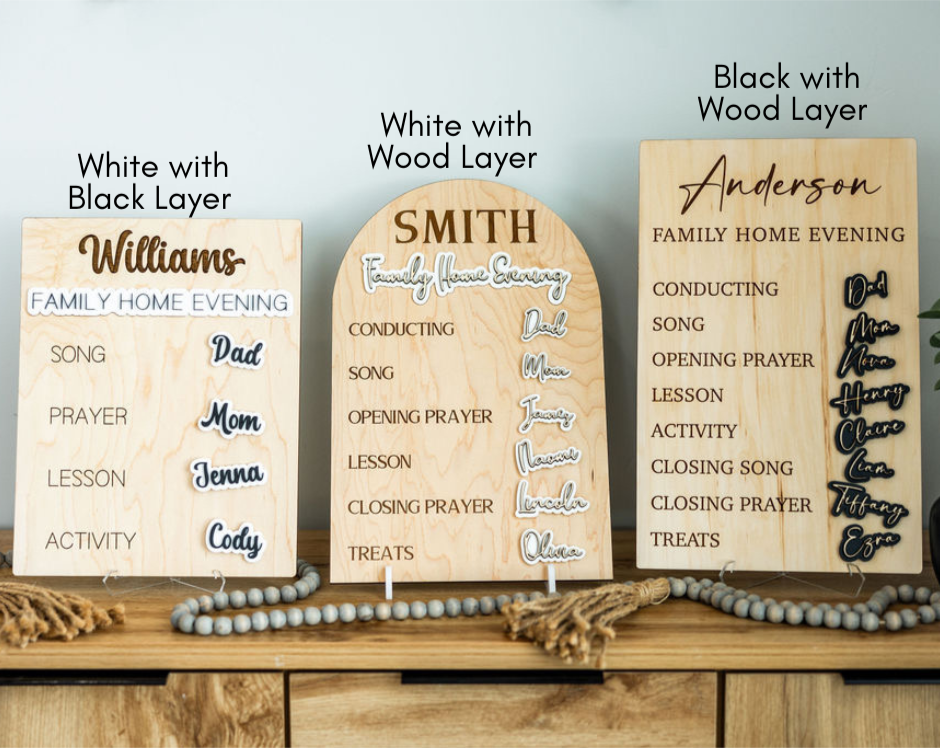 White with
Black Layer
Williams
FAMILY HOME EVENING
SONG Dad
PRAYER Mom
LESSON Jenna
ACTIVITY Cody
White with
Wood Layer
SMITH
Family Home Evening
CONDUCTING Dad
SONG Mom
OPENING PRAYER James
LESSON Naomi
CLOSING PRAYER Lincoln
TREATS Olivia
Black with
Wood Layer
Anderson
FAMILY HOME EVENING
CONDUCTING Dad
SONG Mom
OPENING PRAYER Nora
LESSON Henry
ACTIVITY Claire
CLOSING SONG Liam
CLOSING PRAYER Tiffany
TREATS Ezra